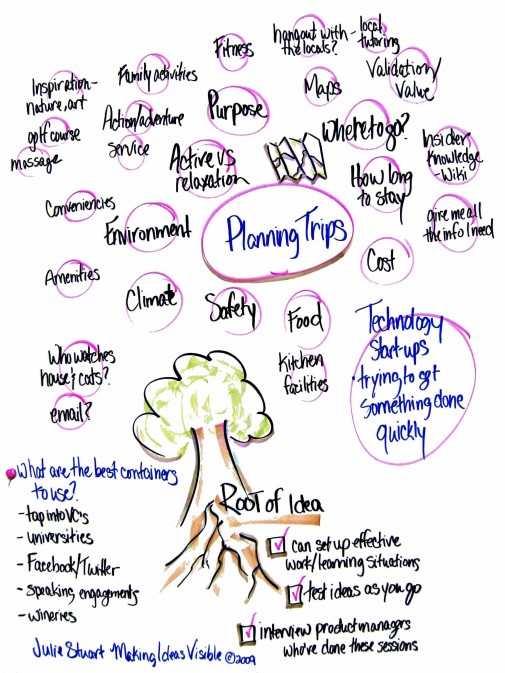 Fitness
hangout with
the locals?
- local
tutoring
Inspiration -
nature, art
Family activities
Maps
Validation/
Value
golf course
massage
Action/adventure
Service
Purpose
Where to go?
Insider
Knowledge
- Wiki
Active vs
relaxation
How long
to stay
Conveniencies
Environment
Planning Trips
give me all
the info I need
Cost
Amenities
Climate
Safety
Food
Kitchen
facilities
Technology
start-ups
trying to get
something done
quickly
Who watches
house & cats?
email?
What are the best containers
to use?
- tap into VC's
- universities
- Facebook/Twitter
- speaking engagements
- wineries
Root of Idea
can set up effective
work/learning situations
test ideas as you go
interview product managers
who've done these sessions
Julie Stuart Making Ideas Visible ©2009